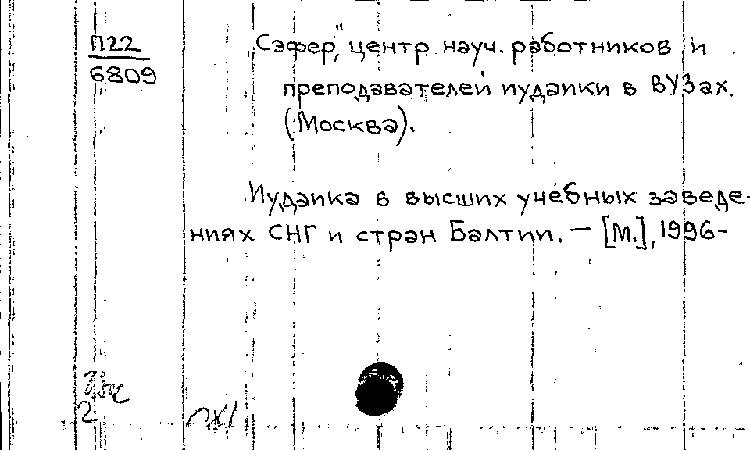 П22
6809
Сэфер", центр науч. работников и
преподавателей иудаики в ВУЗах.
(Москва).
Иудаика в высших учебных заведе-
ниях СНГ и стран Балтии. — [М.], 1996-
2